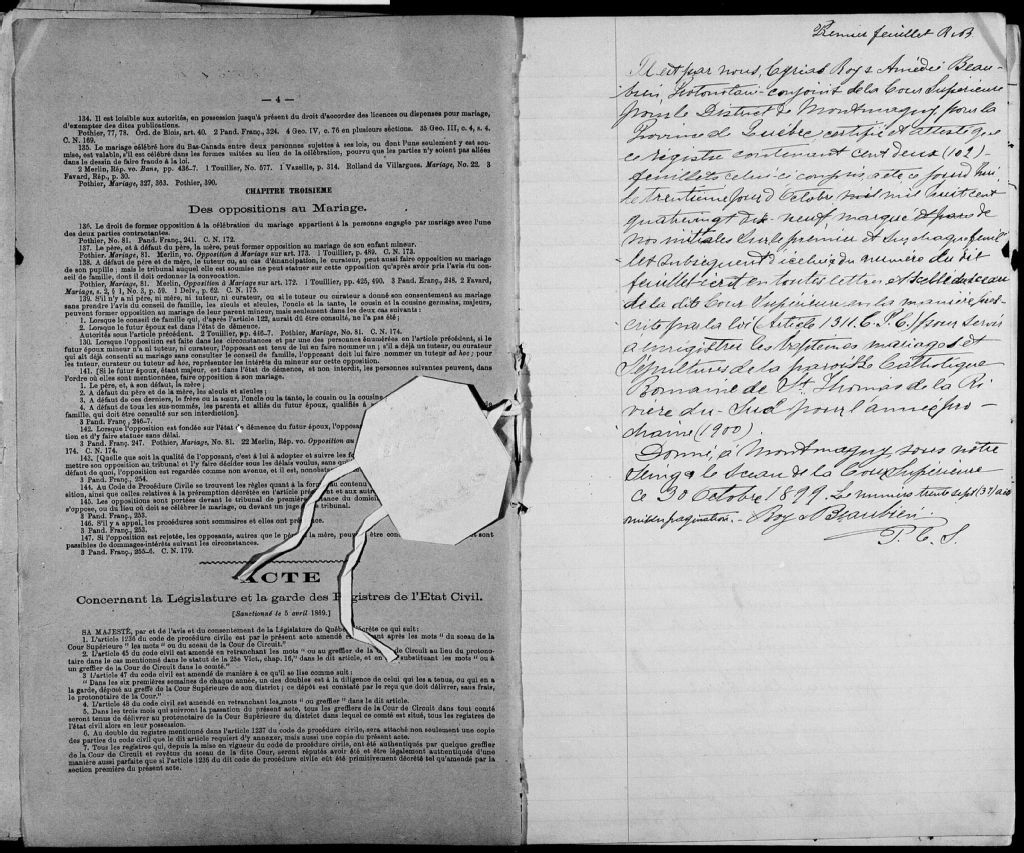 — 4 —
134. Il est loisible aux autorités, en possession jusqu'à présent du droit d'accorder des licences ou dispenses pour mariage,
d'exempter des dites publications.
Pothier, 77, 78. Ord. de Blois, art. 40. 2 Pand. Franç., 324. 4 Geo. IV, c. 76 en plusieurs séctions. 35 Geo. III, c. 4, s. 4.
C. N. 169.
135. Le mariage célébré hors du Bas-Canada entre deux personnes sujettes à ses lois, ou dont l'une seulement y est sou-
mise, est valable, s'il est célébré dans les formes usitées au lieu de la célébration, pourvu que les parties n'y soient pas allées
dans le dessin de faire fraude à la loi.
2 Merlin, Rép. vo. Bans, pp. 436-7. 1 Touillier, No. 577. 1 Vazeille, p. 314. Rolland de Villargues. Mariage, No. 22. 3
Favard, Rép., p. 30.
Pothier, Mariage, 327, 363. Pothier, 390.
CHAPITRE TROISIEME
Des oppositions au Mariage.
136. Le droit de former opposition à la célébration du mariage appartient à la personne engagée par mariage avec l'une
des deux parties contractantes.
Pothier, No. 81. Pand. Franç., 241. C. N. 172.
137. Le père, et à défaut du père, la mère, peut former opposition au mariage de son enfant mineur.
Pothier, Mariage, 81. Merlin, vo. Opposition à Mariage sur art. 173. 1 Touillier, p. 489. C. N. 173.
138. A défaut de père et de mère, le tuteur ou, au cas d'émancipation, le curateur, peut aussi faire opposition au mariage
de son pupille; mais le tribunal auquel elle est soumise ne peut statuer sur cette opposition qu'après avoir pris l'avis du con-
seil de famille, dont il doit ordonner la convocation.
Pothier, Mariage, 81. Merlin, Opposition à Mariage sur art. 172. 1 Touillier, pp. 425, 490. 3 Pand. Franç., 248. 2 Favard,
Mariage, s. 2, § 1, No. 3, p. 59. 1 Delv., p. 62. C. N. 175.
139. S'il n'y a ni père, ni mère, ni tuteur, ni curateur, ou si le tuteur ou curateur a donné son consentement au mariage
sans prendre l'avis du conseil de famille, les aïeuls et aïeules, l'oncle et la tante, le cousin et la cousine germains, majeurs,
peuvent former opposition au mariage de leur parent mineur, mais seulement dans les deux cas suivants:
1. Lorsque le conseil de famille qui, d'après l'article 122, aurait dû être consulté, ne l'a pas été;
2. Lorsque le futur époux est dans l'état de démence.
Autorités sous l'article précédent. 2 Touillier, pp. 446-7. Pothier, Mariage, No. 81. C. N. 174.
130. Lorsque l'opposition est faite dans les circonstances et par une des personnes énumérées en l'article précédent, si le
futur époux mineur n'a ni tuteur, ni curateur, l'opposant est tenu de lui en faire nommer un; s'il a déjà un tuteur, ou curateur
qui ait déjà consenti au mariage sans consulter le conseil de famille, l'opposant doit lui faire nommer un tuteur ad hoc; pour
les tuteur, curateur ou tuteur ad hoc, représenter les intérêts du mineur sur cette opposition.
141. [Si le futur époux, étant majeur, est dans l'état de démence, et non interdit, les personnes suivantes peuvent, dans
l'ordre où elles sont mentionnées, faire opposition à son mariage.
1. Le père, et, à son défaut, la mère;
2. A défaut du père et de la mère, les aïeuls et aïeules;
3. A défaut de ces derniers, le frère ou la sœur, l'oncle ou la tante, le cousin ou la cousine
4. A défaut de tous les sus-nommés, les parents et alliés du futur époux, qualifiés à
famille, qui doit être consulté sur son interdiction].
3 Pand. Franç., 246-7.
142. Lorsque l'opposition est fondée sur l'état de démence du futur époux, l'opposa
tion et d'y faire statuer sans délai.
3 Pand. Franç. 247. Pothier, Mariage, No. 81. 22 Merlin, Rép. vo. Opposition au
174. C. N. 174.
143. [Quelle que soit la qualité de l'opposant, c'est à lui à adopter et suivre les fo
mettre son opposition au tribunal et l'y faire décider sous les délais voulus, sans qu
défaut de quoi, l'opposition est regardée comme non avenue, et il est, nonobstan
3 Pand. Franç., 254.
144. Au Code de Procédure Civile se trouvent les règles quant à la forme, au contenu
sition, ainsi que celles relatives à la préremption décrétée en l'article pré et aux autr
145. Les oppositions sont portées devant le tribunal de première instance du domic
s'oppose, ou du lieu où doit se célébrer le mariage, ou devant un juge tribunal.
3 Pand. Franç., 253.
146. S'il y a appel, les procédures sont sommaires et elles ont préséance.
3 Pand. Franç., 253.
147. Si l'opposition est rejetée, les opposants, autres que le père et la mère, peuvent être con sont
passibles de dommages-intérêts suivant les circonstances.
3 Pand. Franç., 255-6. C. N. 179.
ACTE
Concernant la Législature et la garde des Registres de l'Etat Civil.
[Sanctionné le 5 avril 1869.]
SA MAJESTÉ, par et de l'avis et du consentement de la Législature de Québec, décrète ce qui suit:
1. L'article 1236 du code de procédure civile est par le présent acte amendé en après les mots "du sceau de la
Cour Supérieure" les mots "ou du sceau de la Cour de Circuit."
2. L'article 45 du code civil est amendé en retranchant les mots "ou au greffier de la Cour de Circuit au lieu du protono-
taire dans le cas mentionné dans le statut de la 25e Vict, chap. 16," dans le dit article, et en substituant les mots "ou à
un greffier de la Cour de Circuit dans le comté."
3 L'article 47 du code civil est amendé de manière à ce qu'il se lise comme suit:
"Dans les six premières semaines de chaque année, un des doubles est à la diligence de celui qui les a tenus, ou qui en a
la garde, déposé au greffe de la Cour Supérieure de son district; ce dépôt est constaté par le reçu que doit délivrer, sans frais,
le protonotaire de la Cour."
4. L'article 48 du code civil est amendé en retranchant les mots "ou greffier" dans le dit article.
5. Dans les trois mois qui suivront la passation du présent acte, tous les greffiers de la Cour de Circuit dans tout comté
seront tenus de délivrer au protonotaire de la Cour Supérieure du district dans lequel ce comté est situé, tous les registres de
l'état civil alors en leur possession.
6. Au double du registre mentionné dans l'article 1237 du code de procédure civile, sera attaché non seulement une copie
des parties du code civil que le dit article requiert d'y annexer, mais aussi une copie du présent acte.
7. Tous les registres qui, depuis la mise en vigueur du code de procédure civile, ont été authentiqués par quelque greffier
de la Cour de Circuit et revêtus du sceau de la dite Cour, seront réputés avoir été et être légalement authentiqués d'une
manière aussi parfaite que si l'article 1236 du dit code de procédure civile eût été primitivement décrété tel qu'amendé par la
section première du présent acte.
Premier feuillet R&B
Il est par nous, Cyrias Roy & Amédée Beau-
bien, Protonotaire conjoint de la Cour Supérieure
pour le District de Montmagny, pour la
Province de Québec certifié et attesté que
ce registre contenant cent deux (102)
feuillets celui-ci compris a été ce jourd'hui
le trentième jour d'Octobre mil huit cent
quatrevingt dix-neuf, marqué et paré de
nos initiales sur le premier et sur chaque feuil-
let subsequent d'icelui, du numero du dit
feuillet écrit en toutes lettres et scellé du sceau
de la dite Cour Supérieure en la manière pres-
crite par la loi (Article 1311. C. P. C.) pour servir
à enregistrer les baptêmes mariages et
sépultures de la paroisse Catholique
Romaine de St. Thomas de la Ri-
vière du Sud pour l'année pro-
chaine (1900).
Donné, à Montmagny sous notre
seing & le sceau de la Cour Supérieure
ce 30 Octobre 1899. Le numero trente sept (37)
mis en pagination. - Roy & Beaubien.
P. C. S.